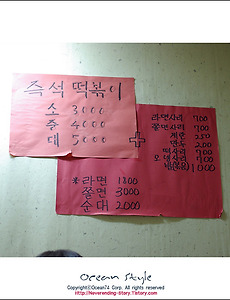 즉석 떡볶이
소 3000
중 4000
대 5000
라면사리 700
쫄면사리 700
계란 250
만두 200
떡사리 700
오뎅사리 700
1000
*라면 1800
쫄면 3000
순대 2000
Ocean Style
Copyright©Ocean74 Corp. All rights reserved
http://Neverending-story.Tistory.com